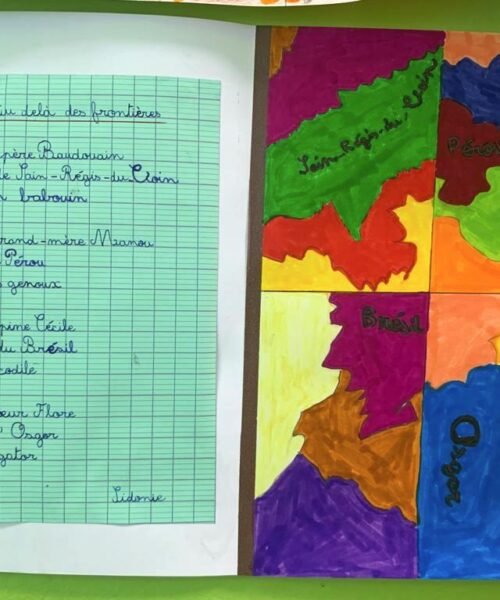 au delà des frontières
père Baudouain
de Sain-Régis-du-Croin
babouin
grand-mère Mianou
Pérou
genoux
Cécile
du Brésil
Flore
d'Osgor
Sidonie
Sain-Régis-du-Croin
Pérou
Brésil
Osgor